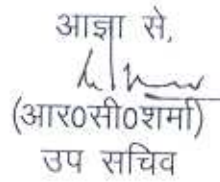 आज्ञा से,
(आर0सी0शर्मा)
उप सचिव